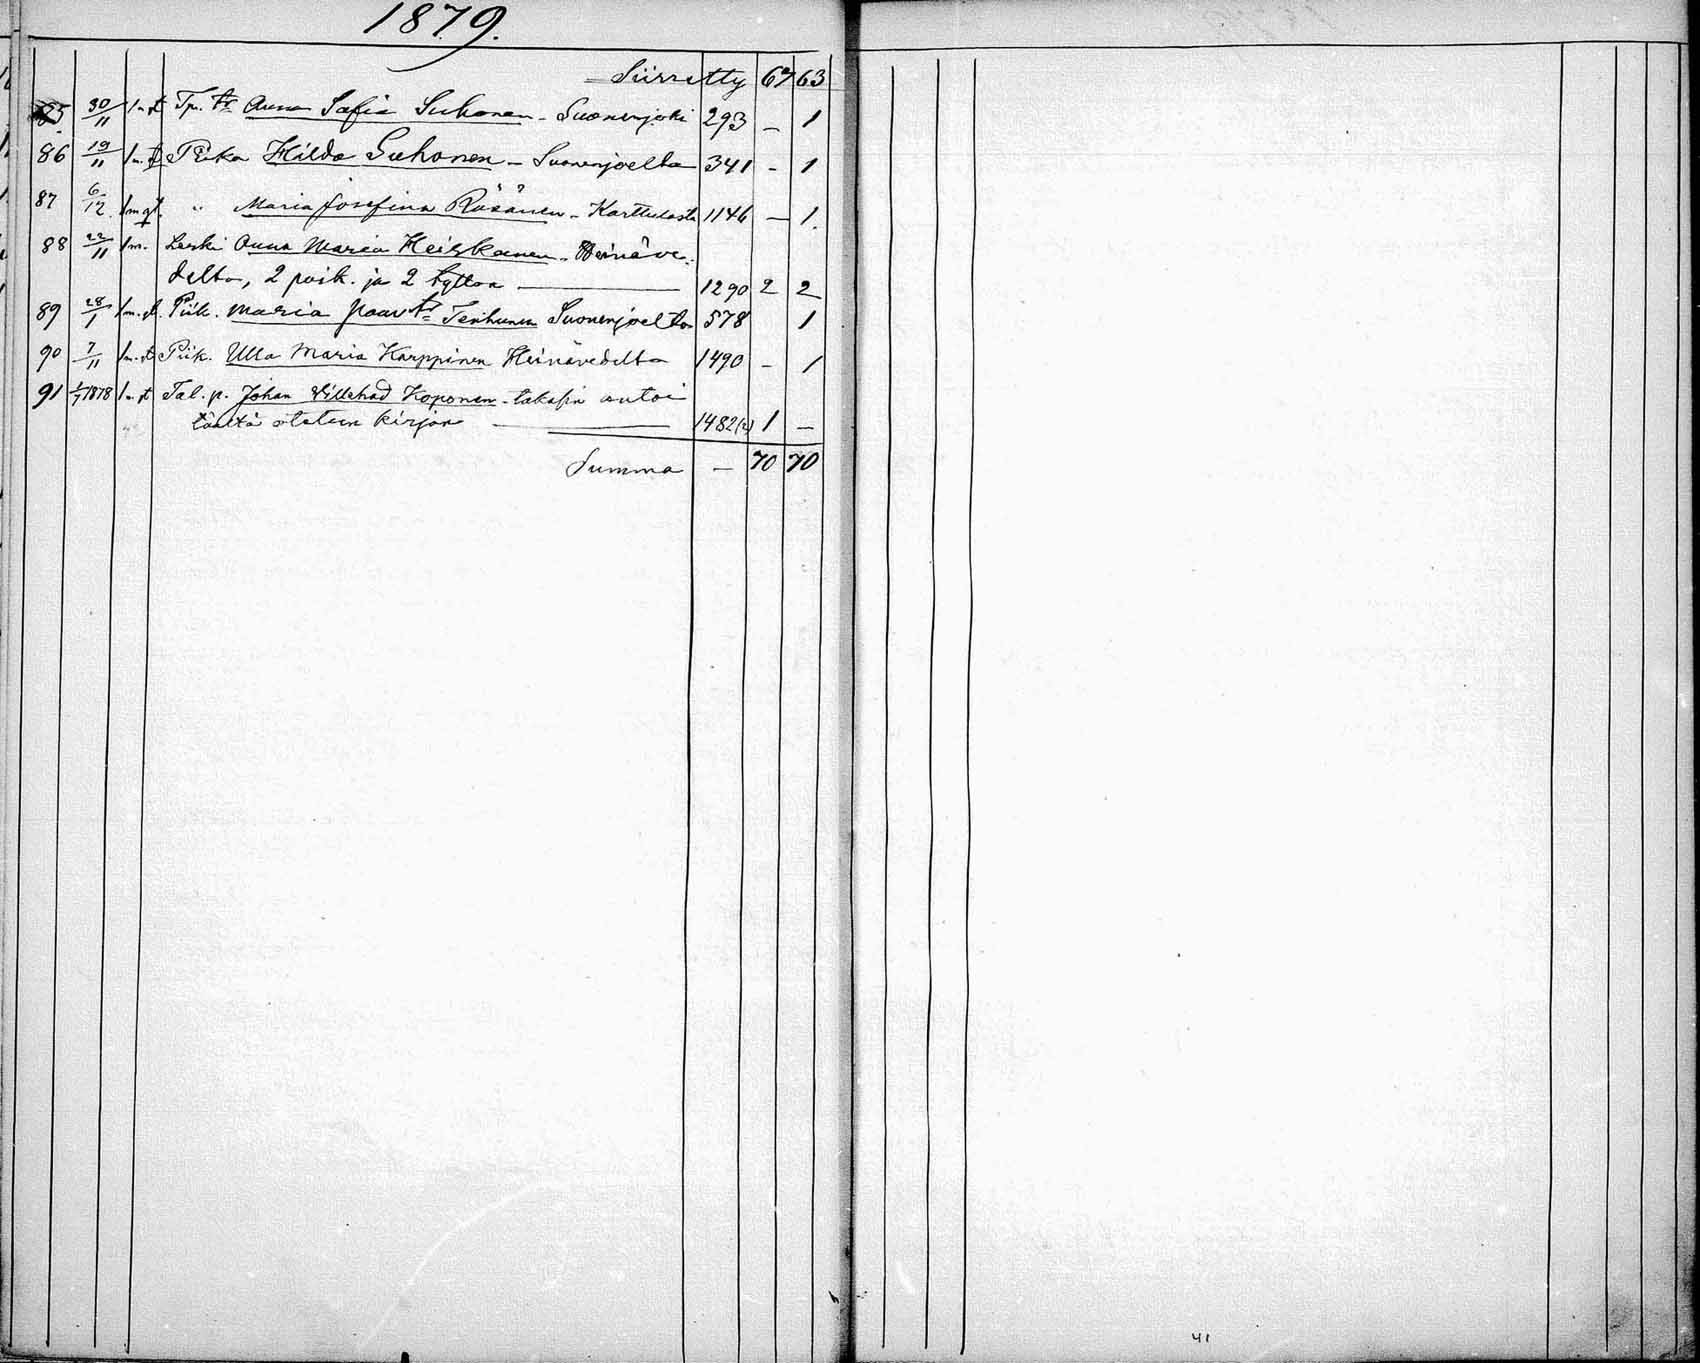 1879.
Siirretty 67 63
85 30/11 Tp. tr Anna Sofia Suhonen - Suonenjoki 293 - 1
86 19/11 Piika Hilda Suhonen - Suonenjoelta 341 - 1
87 6/12 " Maria Josefina Räsänen - Karttulasta 1146 - 1.
88 22/11 Leski Anna Maria Heiskanen - Heinäve-
delta, 2 poik. ja 2 tyttöä 1290 2 2
89 28/1 Piik. Maria Paavtr Tenhunen Suonenjoelta 578 1
90 7/11 Piik. Ulla Maria Karppinen Heinävedelta 1490 - 1
91 1/7 1878 Tal. p. Johan Villehad Koponen - takasin antoi
täältä otetun kirjan 1482 (2) 1 -
Summa - 70 70
41